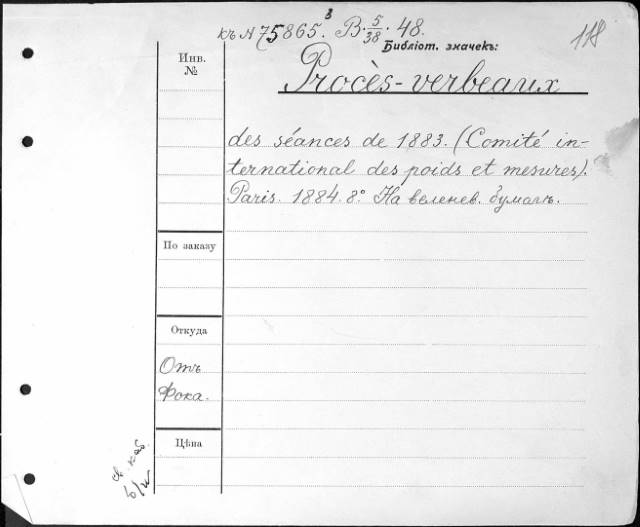 къ № 75865.³ В. 5/38. 48.
118
Библіот. значекъ:
Инв.
№
Procès-verbeaux
des séances de 1883. (Comité in-
ternational des poids et mesures).
Paris. 1884. 8°. На веленев. бумагѣ.
По заказу
Откуда
Отъ
Фока.
Цѣна